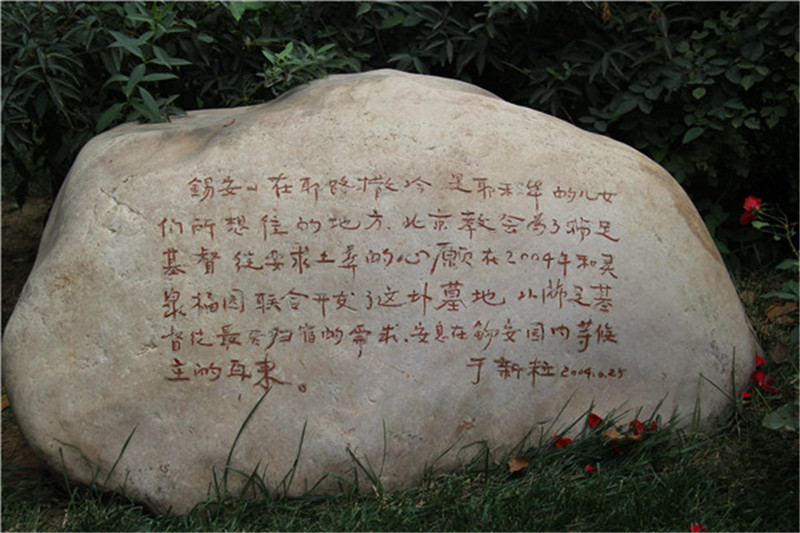 锡安山在耶路撒冷 是耶和华的儿女
们所想往的地方.北京教会为了满足
基督徒要求土葬的心愿在2004年和灵
泉福园联合开发了这块墓地 以满足基
督徒最后归宿的需求.安息在锡安园内等候
主的再来。 于新粒 2004.6.25